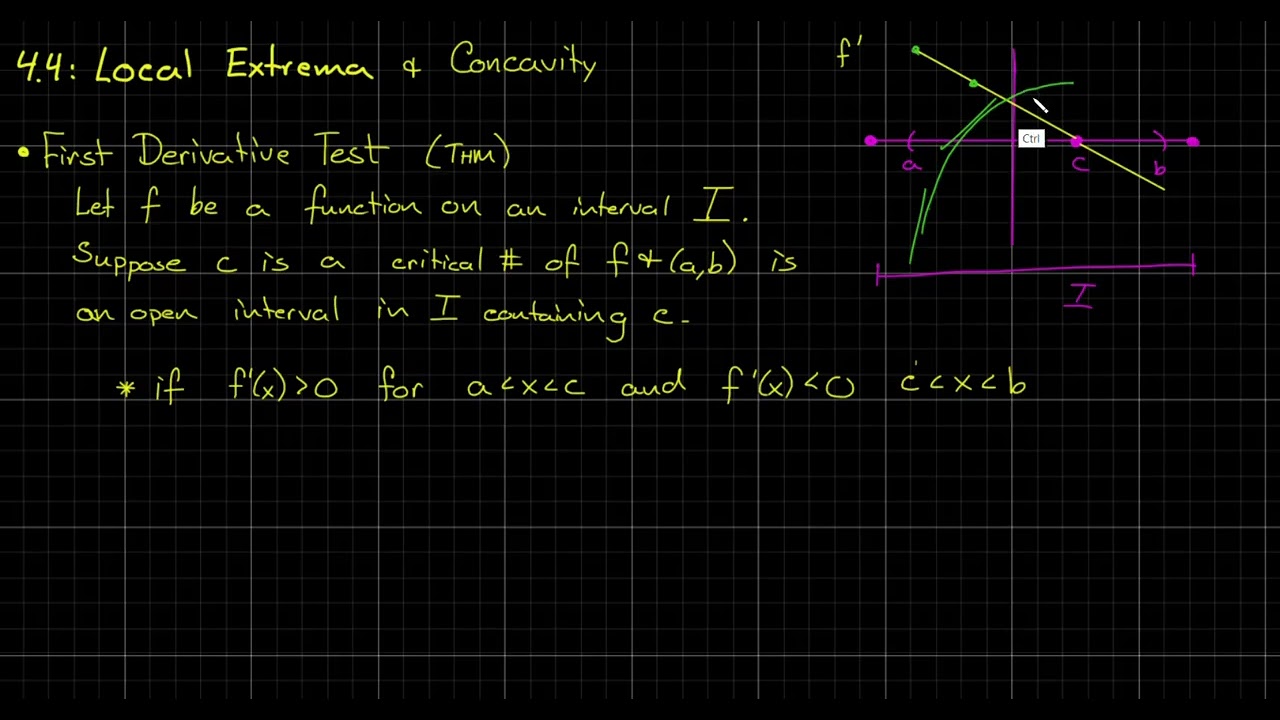 4.4: Local Extrema & Concavity
f'
• First Derivative Test (THM)
Ctrl
a c b
Let f be a function on an interval I.
Suppose c is a critical # of f & (a,b) is
I
an open interval in I containing c.
* if f'(x)>0 for a<x<c and f'(x)<0 c<x<b